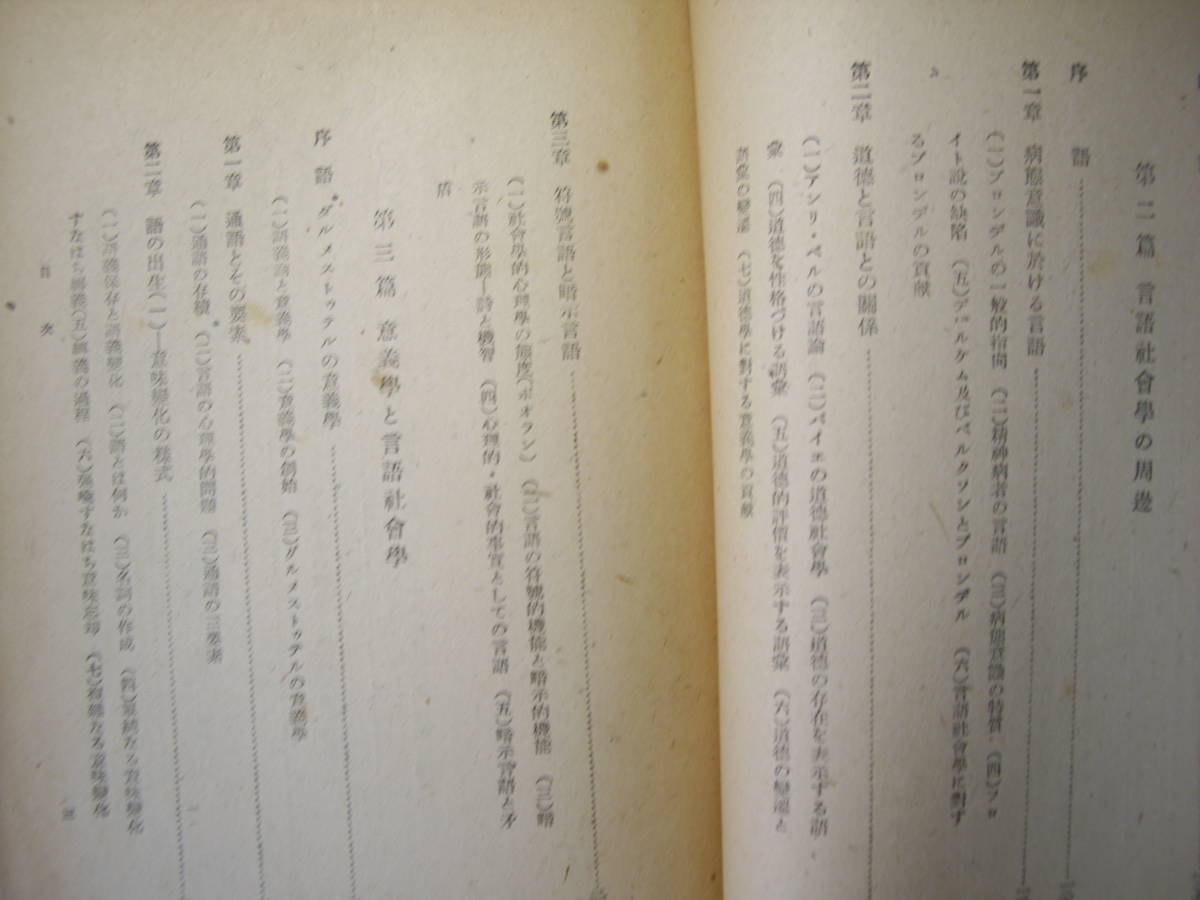 第二篇 言語社會學の周邊
序 語
第一章 病態意識に於ける言語
(一)ブロンデルの一般的指向 (二)精神病者の言語 (三)病態意識の特質 (四)フロ
イト説の缺陷 (五)デュルケム及びベルクソンとブロンデル (六)言語社會學に對す
るブロンデルの貢獻
第二章 道德と言語との關係
(一)アンリ・ベルの言語論 (二)バイエの道德社會學 (三)道德の存在を表示する語
彙 (四)道德を性格づける語彙 (五)道德的評價を表示する語彙 (六)道德の變遷と
語彙の變遷 (七)道德學に對する意義學の貢獻
第三章 符號言語と暗示言語
(一)社會學的心理學の態度(ポオラン) (二)言語の符號的機能と暗示的機能 (三)暗
示言語の形態―詩と機智 (四)心理的・社會的事實としての言語 (五)暗示言語と矛
盾
第三篇 意義學と言語社會學
序 語 ダルメストゥテルの意義學
(一)語義論と意義學 (二)意義學の創始 (三)ダルメストゥテルの意義學
第一章 通語とその要素
(一)通語の存積 (二)言語の心理學的問題 (三)通語の三要素
第二章 語の出生(一)―意味變化の樣式
(一)語義保存と語義變化 (二)語とは何か (三)名詞の作成 (四)單純なる意味變化
すなはち (五)の過程 (六)すなはち意味忘却 (七)複雜なる意味變化
目 次
三